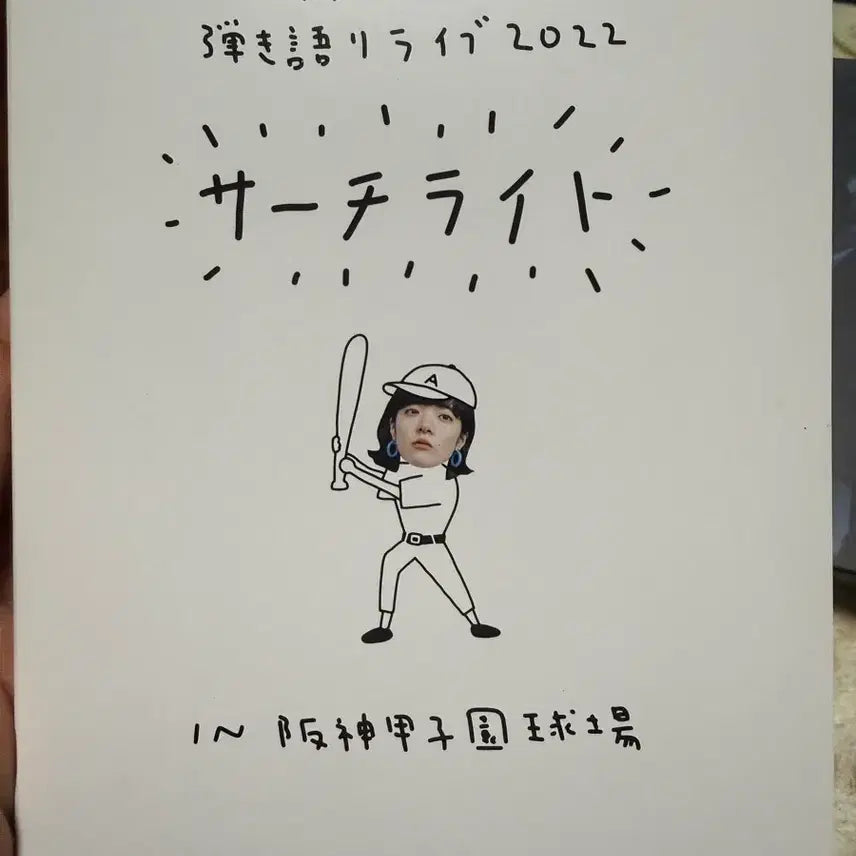 弾き語りライブ2022
サーチライト
A
IN 阪神甲子園球場